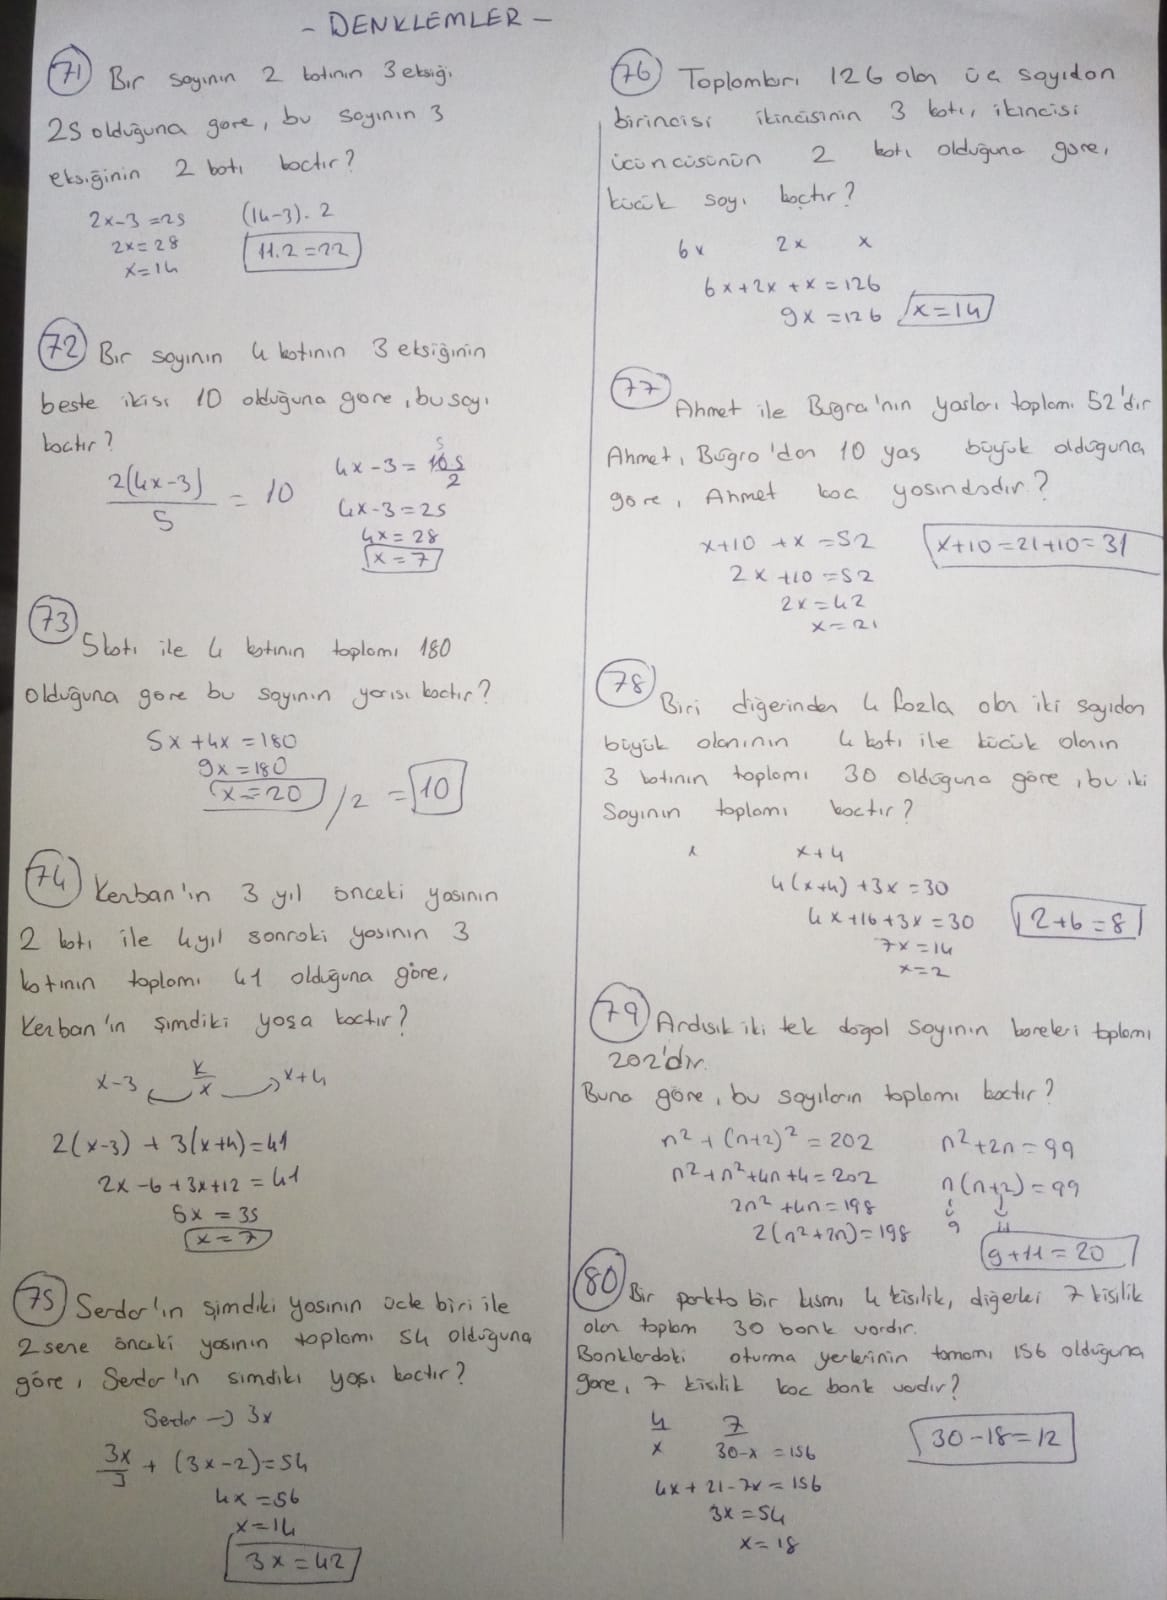 - DENKLEMLER -
71 Bir sayının 2 katının 3 eksiği
25 olduğuna göre, bu sayının 3
eksiğinin 2 katı kaçtır?
2x-3=25 (14-3).2
2x=28 11.2=22
x=14
72 Bir sayının 4 katının 3 eksiğinin
beşte ikisi 10 olduğuna göre, bu sayı
kaçtır?
2(4x-3)/5 = 10
4x-3=10.5/2
5
4x-3=25
4x=28
x=7
73 5 katı ile 4 katının toplamı 180
olduğuna göre bu sayının yarısı kaçtır?
5x+4x=180
9x=180
x=20 /2 = 10
74 Kerban'ın 3 yıl önceki yaşının
2 katı ile 4 yıl sonraki yaşının 3
katının toplamı 41 olduğuna göre,
Kerban'ın şimdiki yaşa kaçtır?
K
x-3 x x+4
2(x-3) + 3(x+4)=41
2x-6+3x+12=41
5x=35
x=7
75 Serdar'ın şimdiki yaşının üçte biri ile
2 sene önceki yaşının toplamı 54 olduğuna
göre, Serdar'ın şimdiki yaşı kaçtır?
Serdar → 3x
3x/3 + (3x-2)=54
4x=56
x=14
3x=42
76 Toplamları 126 olan üç sayıdan
birincisi ikincisinin 3 katı, ikincisi
üçüncüsünün 2 katı olduğuna göre,
küçük sayı kaçtır?
6x 2x x
6x+2x+x=126
9x=126 x=14
77 Ahmet ile Buğra'nın yaşları toplamı 52'dir
Ahmet, Buğra'dan 10 yaş büyük olduğuna
göre, Ahmet kaç yaşındadır?
x+10+x=52 x+10=21+10=31
2x+10=52
2x=42
x=21
78 Biri diğerinden 4 fazla olan iki sayıdan
büyük olanının 4 katı ile küçük olanın
3 katının toplamı 30 olduğuna göre, bu iki
Sayının toplamı kaçtır?
x x+4
4(x+4)+3x=30
4x+16+3x=30 2+6=8
7x=14
x=2
79 Ardışık iki tek doğal sayının kareleri toplamı
202'dir.
Buna göre, bu sayıların toplamı kaçtır?
n²+(n+2)²=202 n²+2n=99
n²+n²+4n+4=202 n(n+2)=99
2n²+4n=198 9 11
2(n²+2n)=198
9+11=20
80 Bir parkta bir kısmı 4 kişilik, diğerleri 7 kişilik
olan toplam 30 bank vardır.
Banklardaki oturma yerlerinin tamamı 156 olduğuna
göre, 7 kişilik kaç bank vardır?
4 7
x 30-x=156 30-18=12
4x+21-7x=156
3x=54
x=18